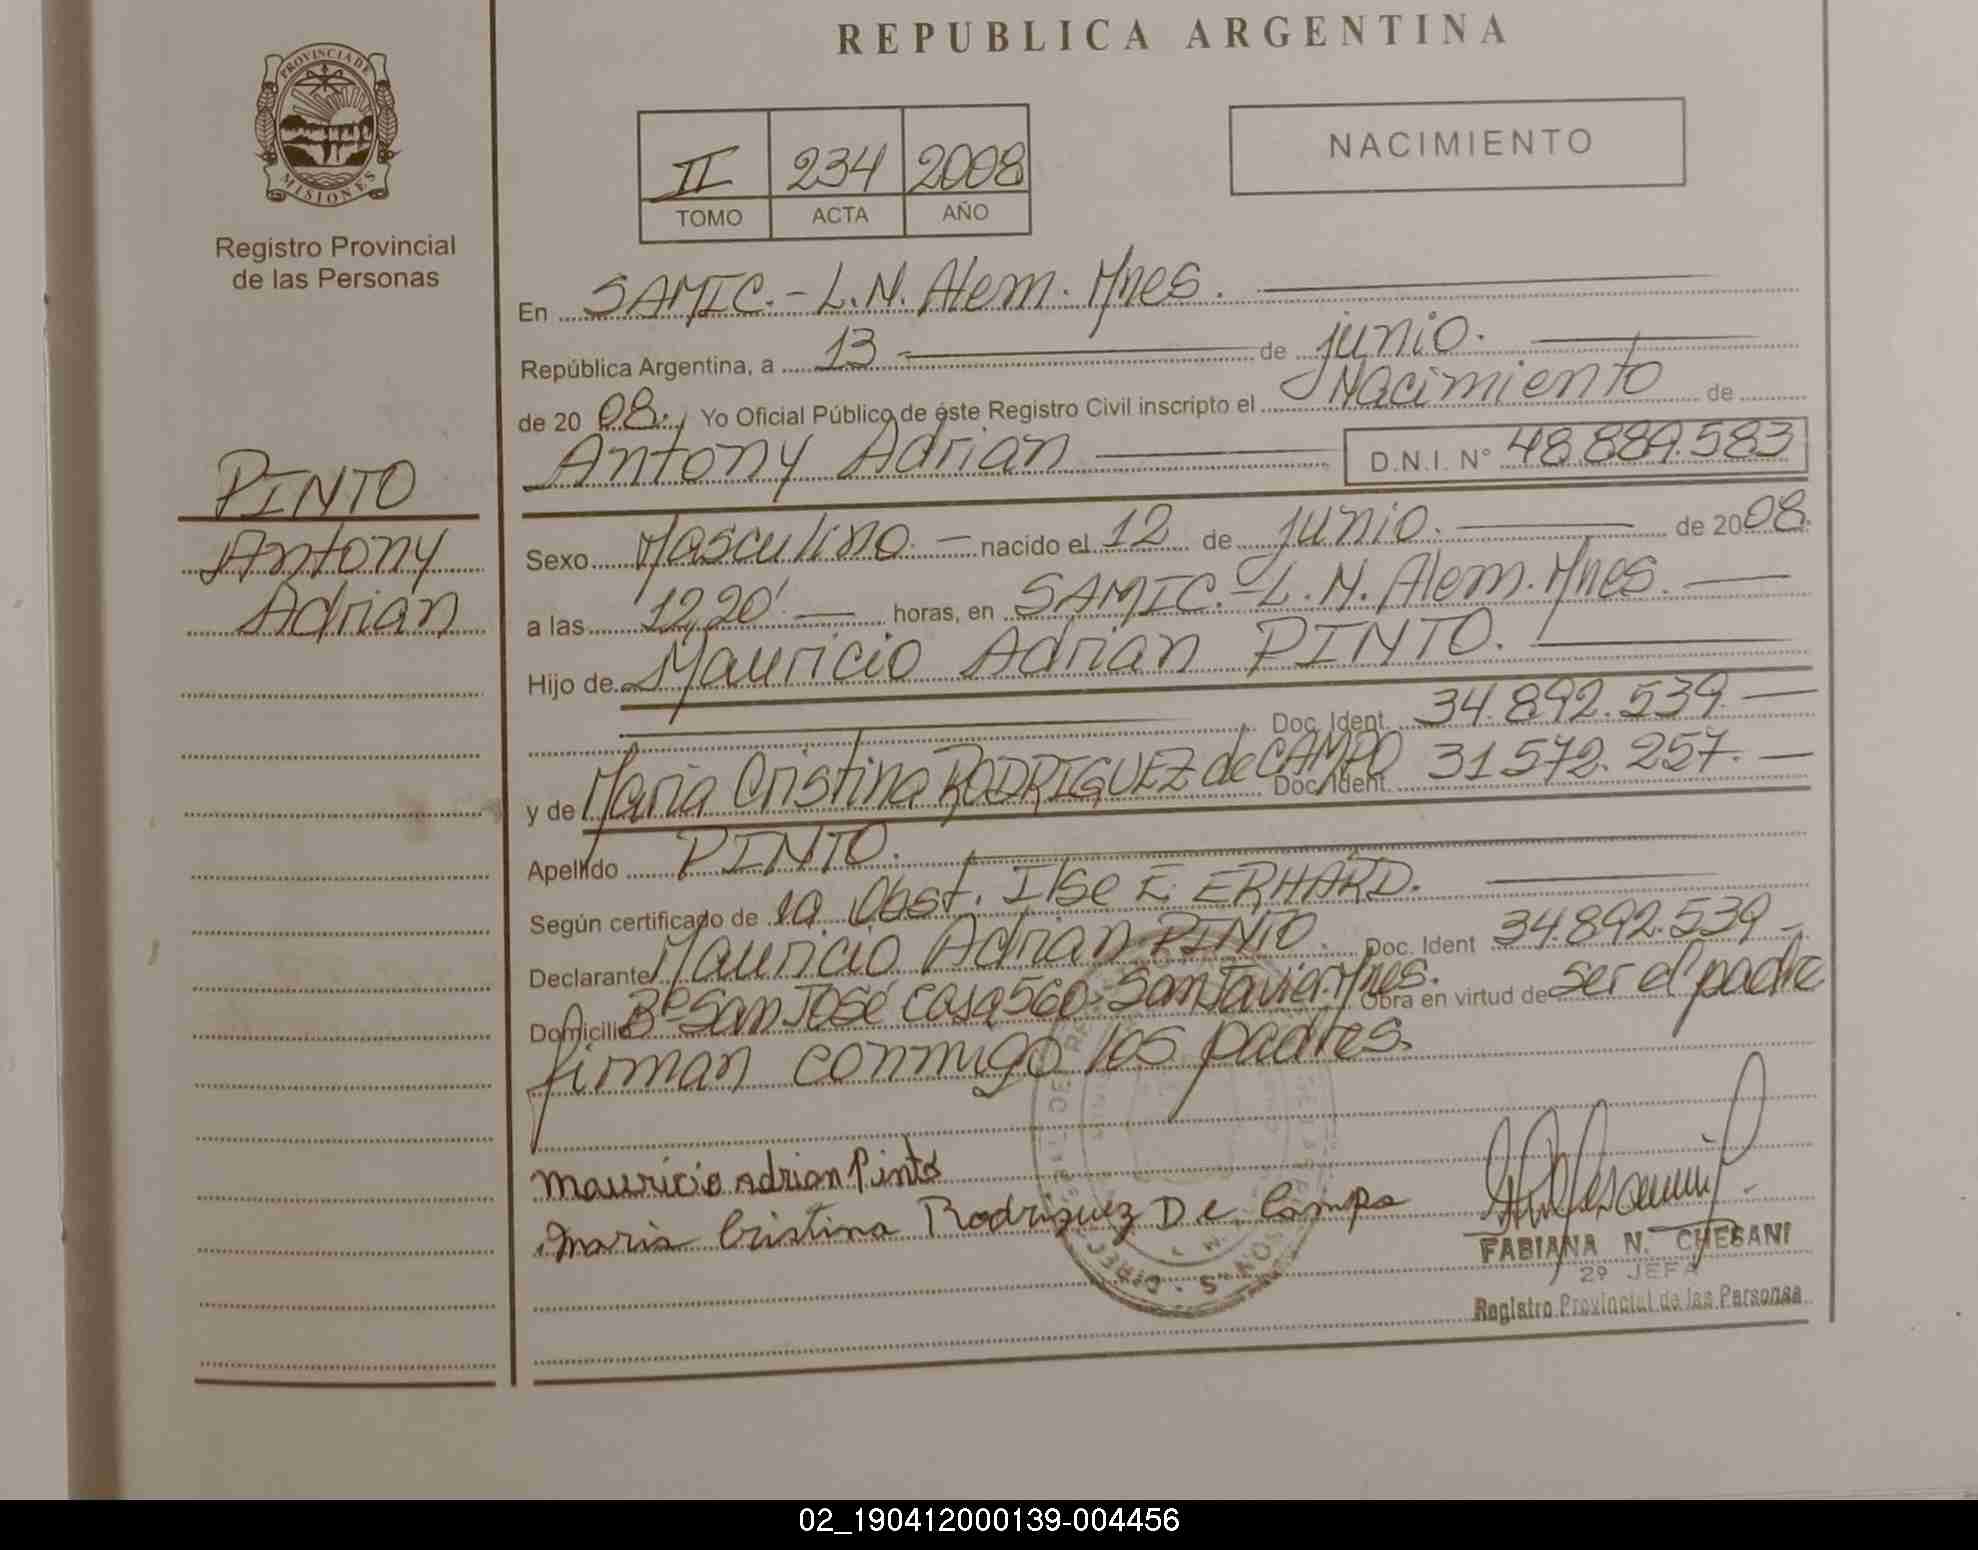 REPUBLICA ARGENTINA
PROVINCIA DE
MISIONES
Registro Provincial
de las Personas
II 234 2008
TOMO ACTA AÑO
NACIMIENTO
En SAMIC.- L.N. Alem. Mnes.
República Argentina, a 13 de junio.
de 20 08. Yo Oficial Público de éste Registro Civil inscripto el Nacimiento de
Antony Adrian D.N.I. N° 48.889.583
PINTO
Antony
Adrian
Sexo Masculino. nacido el 12 de junio. de 20 08.
a las 12,20' horas, en SAMIC.- L.N. Alem. Mnes.
Hijo de Mauricio Adrian PINTO.
Doc. Ident. 34.892.539.
y de Maria Cristina RODRIGUEZ de CAMPO Doc. Ident. 31572.257.
Apellido PINTO.
Según certificado de la Obst. Ilse E. ERHARD.
Declarante Mauricio Adrian PINTO. Doc. Ident 34892.539
Domicilio Bº San José Casa 560. San Javier. Mnes. Obra en virtud de ser el padre
firman conmigo los padres.
Mauricio Adrian Pinto
Maria Cristina Rodriguez De Campo
FABIANA N. CHESANI
2º JEFA
Registro Provincial de las Personas
02_190412000139-004456